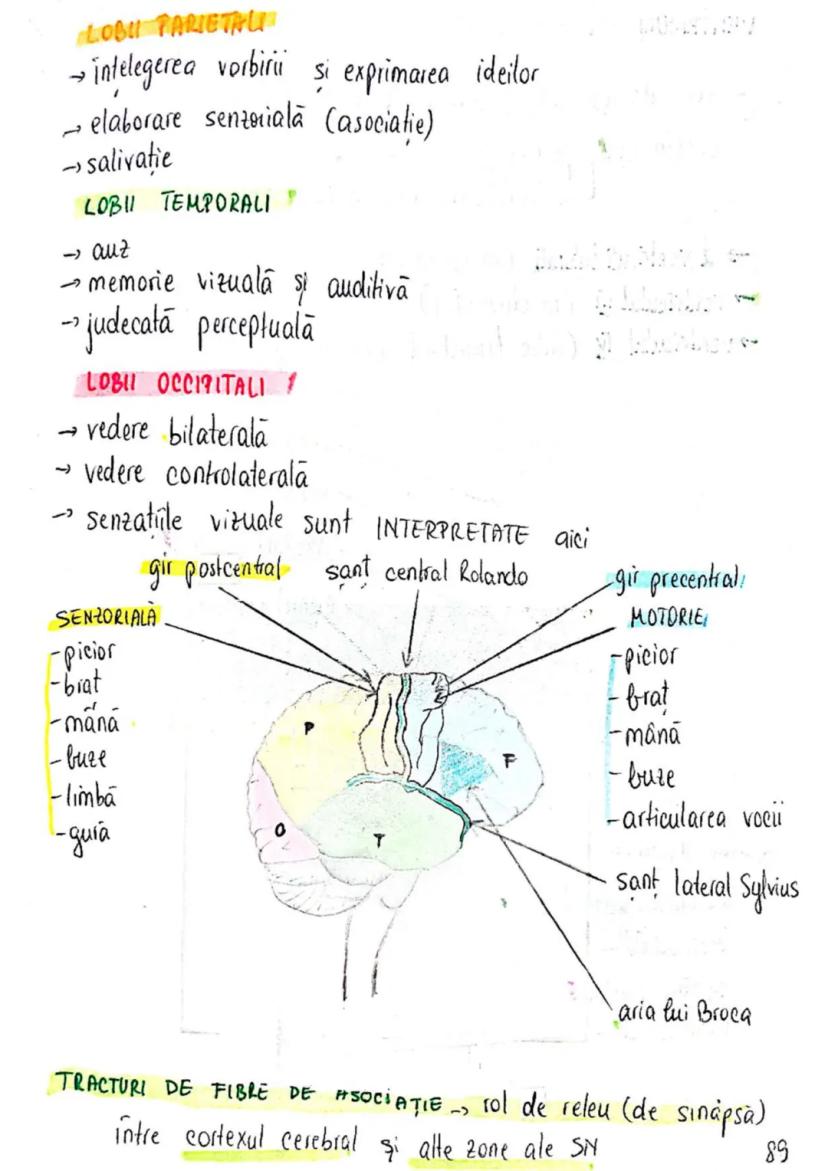 LOBII PARIETALI
→ înțelegerea vorbirii și exprimarea ideilor
→ elaborare senzorială (asociație)
→ salivație
LOBII TEMPORALI
→ auz
→ memorie vizuală și auditivă
→ judecată perceptuală
LOBII OCCIPITALI
→ vedere bilaterală
→ vedere controlaterală
→ senzațiile vizuale sunt INTERPRETATE aici
gir postcentral
șanț central Rolando
gir precentral
SENZORIALĂ
- picior
- braț
- mână
- buze
- limbă
- gură
MOTORIE
- picior
- braț
- mână
- buze
- articularea vocii
P
F
O
T
șanț lateral Sylvius
aria lui Broca
TRACTURI DE FIBRE DE ASOCIAȚIE → rol de releu (de sinapsă)
între cortexul cerebral și alte zone ale SN
89